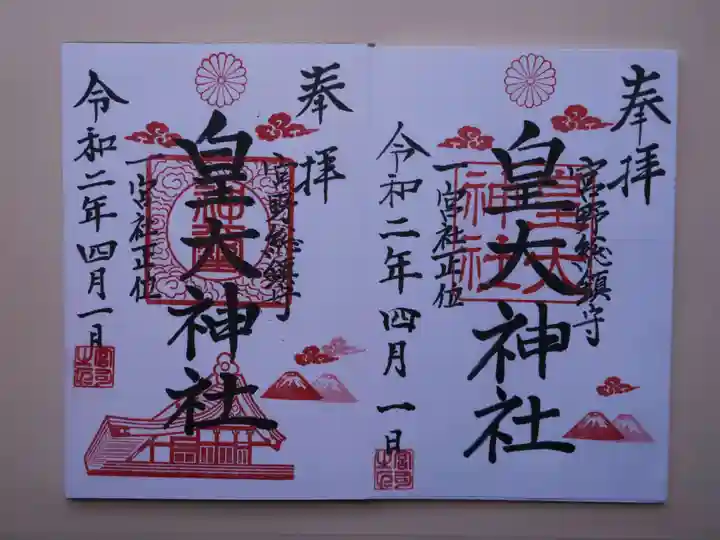 奉拝
宮野総鎮守
皇大神社
皇大
神社
一宮社正位
令和二年四月一日
奉拝
宮野総鎮守
皇大神社
一宮社正位
令和二年四月一日